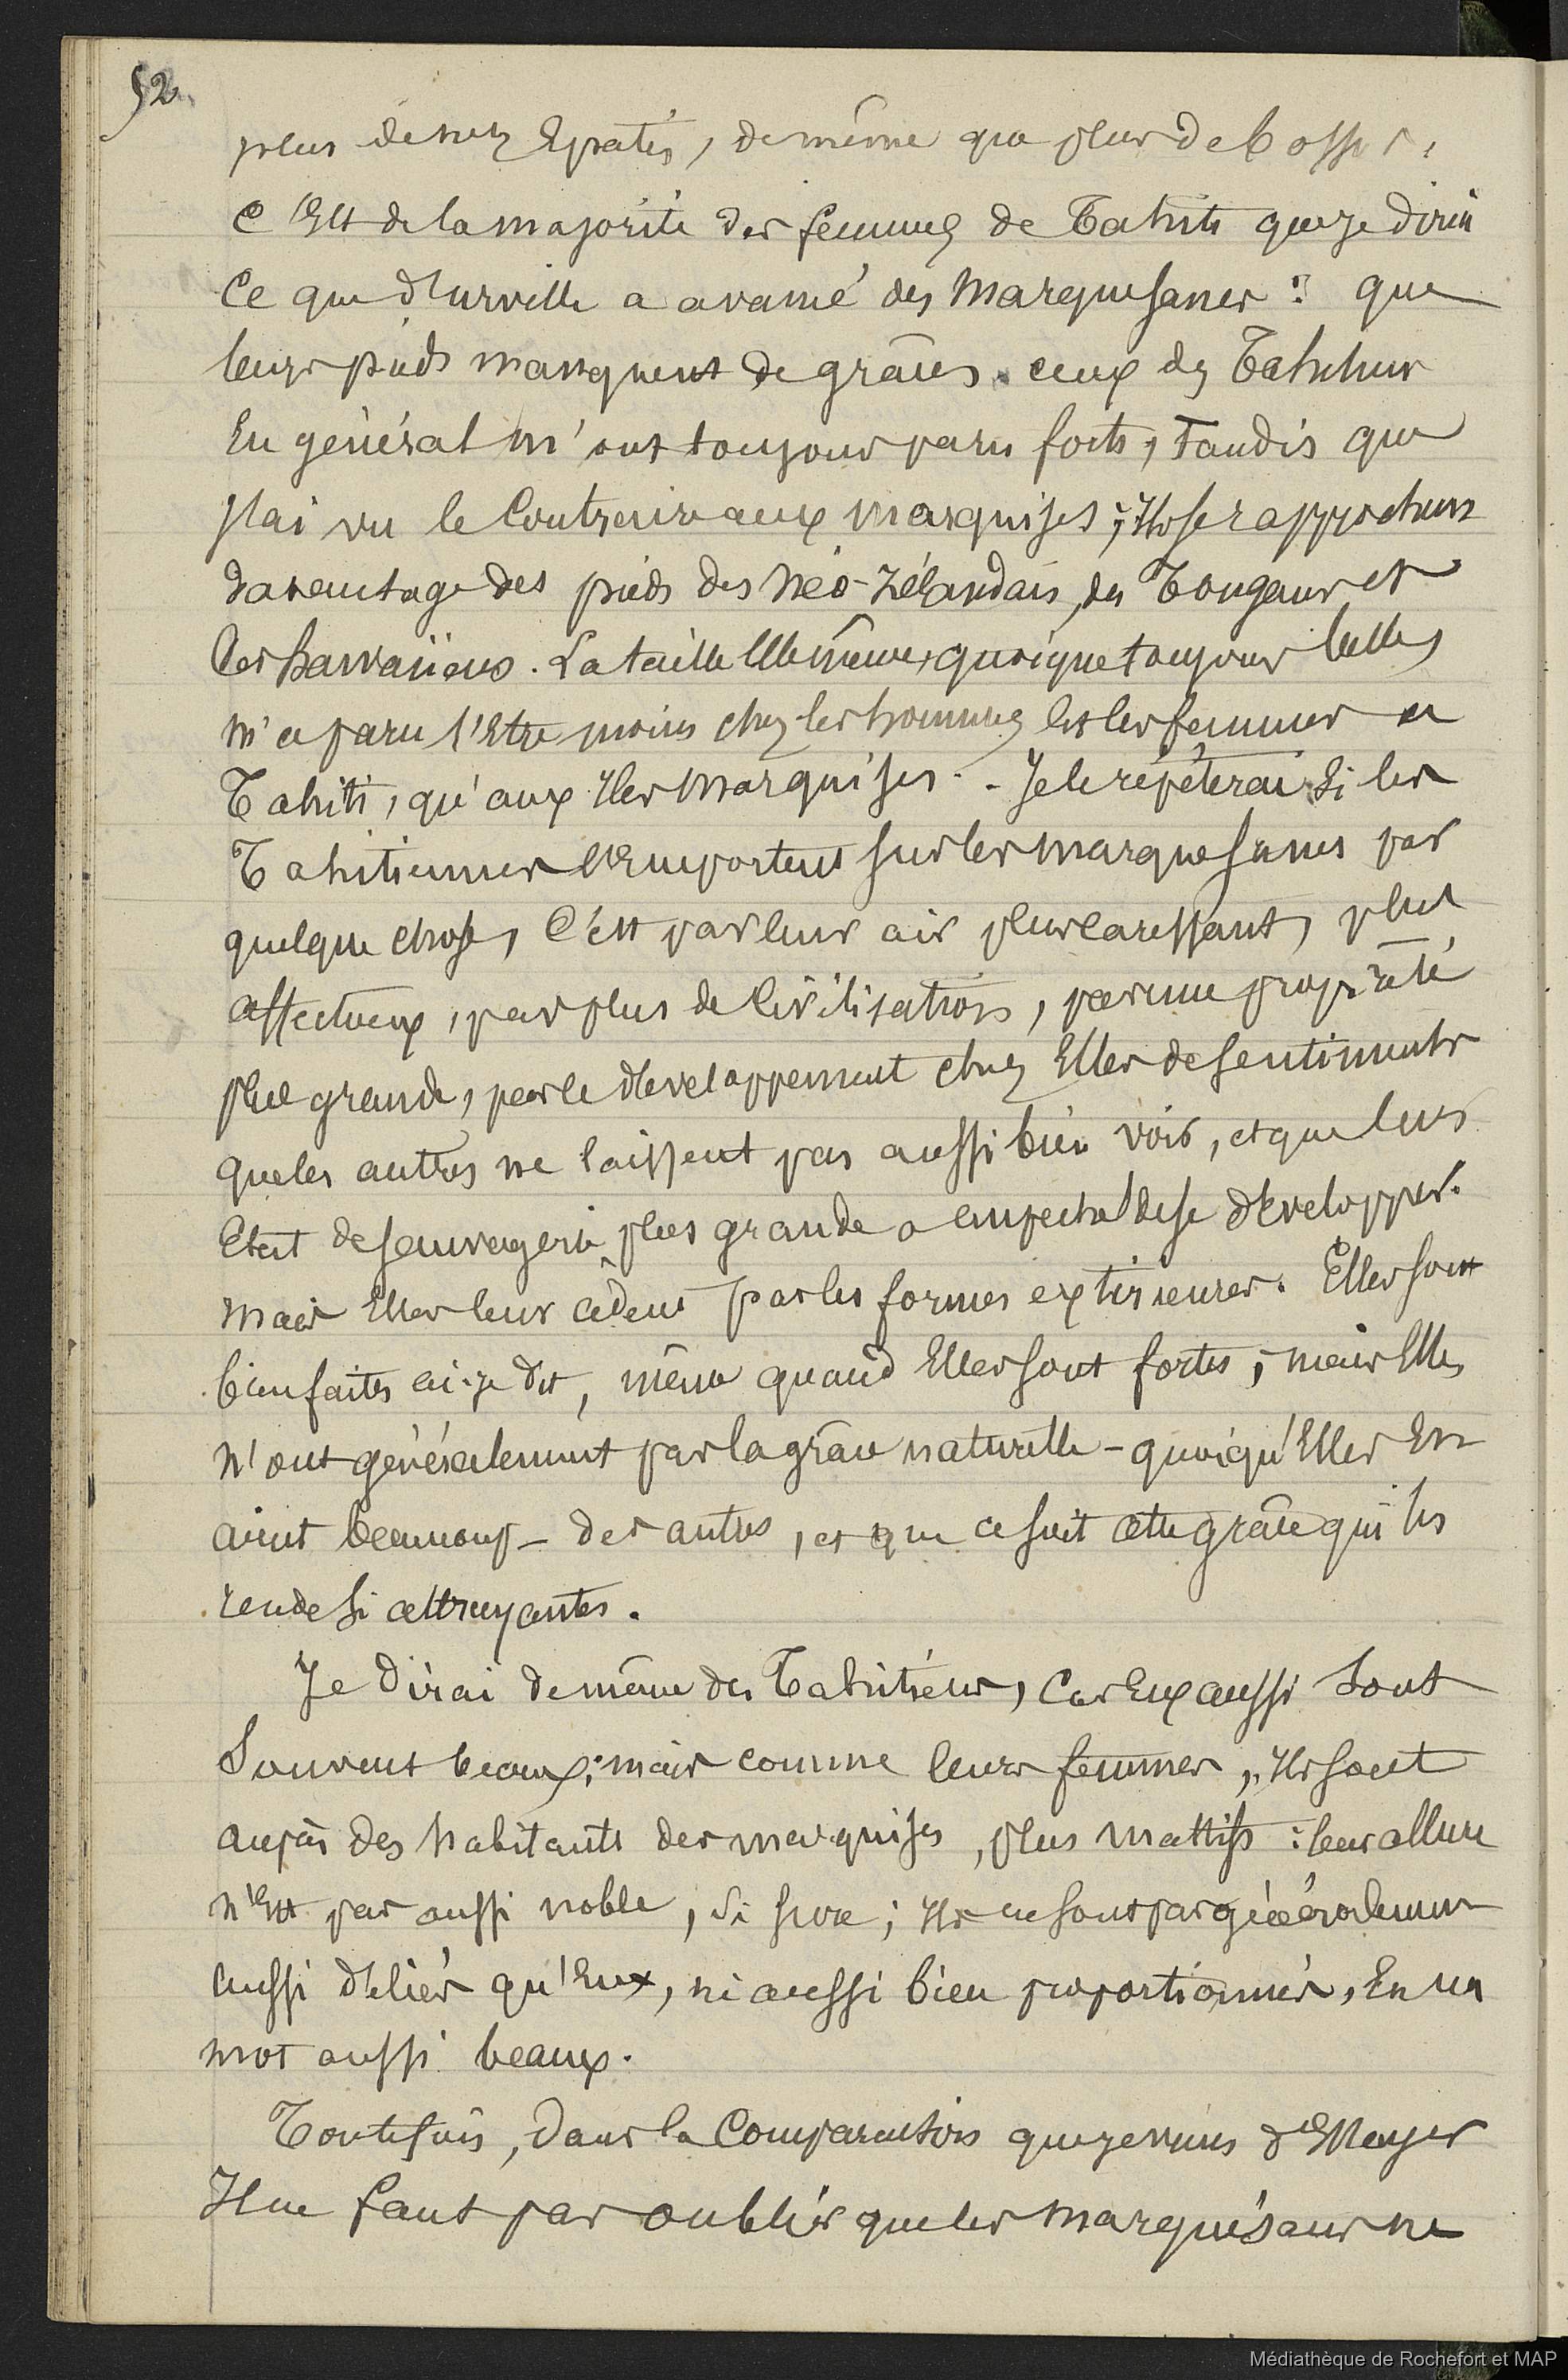 52
plus de nez Epatés, de même que plus de bosses,
C'Est de la majorité des femmes de Tahiti que je dirai
Ce que d'Urville a avancé des Marquesanes : que
leurs pieds manquent de grâces. ceux des Tahitiens
En général m'ont toujours paru forts, Tandis que
j'ai vu le Contraire aux marquises ; Ils se rapprochent
davantage des pieds des Néo-Zélandais, des Tongans et
des hawaïiens. La taille Elle même, quoique toujours belle,
m'a paru l'Etre moins chez les hommes Et les femmes a
Tahiti, qu'aux Iles Marquises. - Je le répéterai Si les
Tahitiennes l'Emportent sur les marquesanes par
quelque chose, C'est par leur air plus caressant, plus
affectueux, par plus de Civilisation, par une propreté
plus grande, par le développement chez Elles de sentiments
que les autres ne laissent pas aussi bien voir, et que leur
Etat de sauvagerie plus grande a empeché de se développer.
mais Elles leur cèdent par les formes extérieures. Elles sont
bien faites ai-je dit, même quand Elles sont fortes ; mais Elles
n'ont généralement pas la grâce naturelle - quoiqu'Elles En
aient beaucoup - des autres, et que ce soit cette grâce qui les
rende Si attrayantes.
Je dirai de même des Tahitiens, Car Eux aussi Sont
Souvent beaux ; mais comme leurs femmes, Ils sont
auprès des habitants des marquises, plus mattifs : leur allure
n'Est pas aussi noble, si fière ; Ils ne sont pas généralement
aussi déliés qu'Eux, ni aussi bien proportionnés, En un
mot aussi beaux.
Toutefois, dans la Comparaison que je viens d'Essayer
Il ne faut pas oublier que les Marquésans ne
Médiathèque de Rochefort et MAP